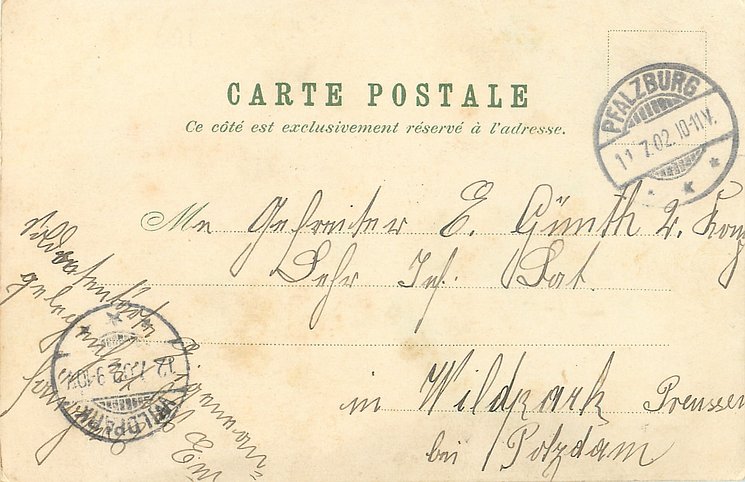 CARTE POSTALE
Ce côté est exclusivement réservé à l'adresse.
PFALZBURG
11 7.02. 10-11.V.
M Gefreiter E. Günth 2. Komp
Lehr Inf. Bat.
in Wildpark Preussen
bei Potzdam
Soldatenbrief
Eigene
WILDPARK
12.7.02. 9-10V.